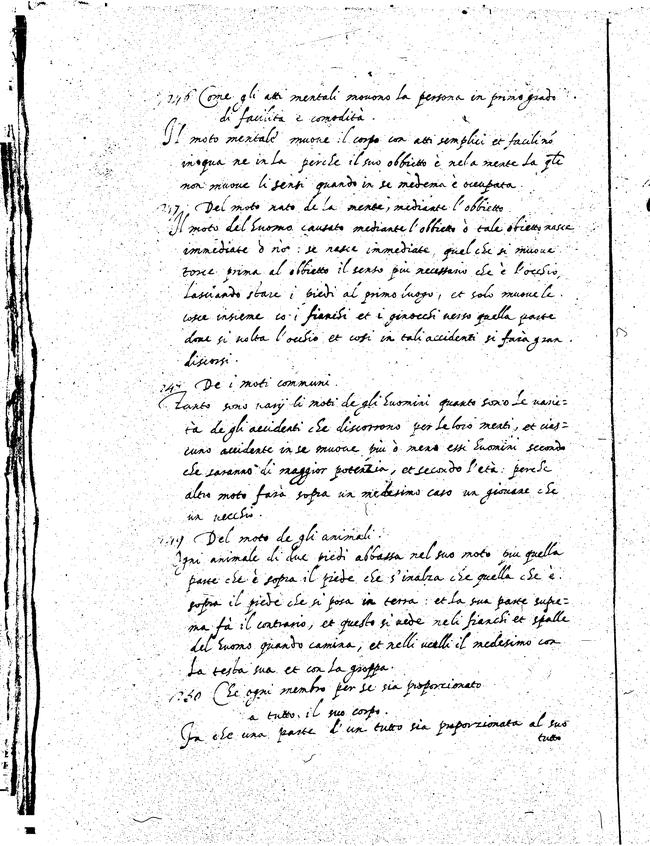 246 Come gli atti mentali movono la persona in primo grado
di facilità e comodità.
Il moto mentale muove il corpo con atti semplici et facili nō
in qua ne in la perche il suo obbietto è nela mente la qle
non muove li sensi quando in se medema è occupata.
247 Del moto nato de la mente, mediante l'obbietto
Il moto del huomo causato mediante l'obbietto ò tale obietto nasce
immediate ò nò: se nasce immediate, quel che si muove
torce prima al obbietto il senso piu necessario che è l'occhio,
lasciando stare i piedi al primo luogo, et solo muove le
cosce insieme co i fianchi et i ginocchi verso quella parte
dove si volta l'occhio et cosi in tali accidenti si farà gran
discorsi.
De i moti communi.
Tanto sono varij li moti de gli huomini quanto sono le varie=
tà de gli accidenti che discorrono per le loro menti, et cias=
cuno accidente in se muove più ò meno essi huomini secondo
che saranno di maggior potenzia, et secondo l'età: perche
altro moto farà sopra un medesimo caso un giovane che
un vecchio.
Del moto de gli animali.
Ogni animale di due piedi abbassa nel suo moto piu quella
parte che è sopra il piede che s'inalza che quella che è
sopra il piede che si posa in terra: et la sua parte supre=
ma fà il contrario, et questo si vede neli fianchi et spalle
del huomo quando camina, et nelli ucelli il medesimo con
la testa sua et con la groppa.
250 Che ogni membro per se sia proporcionato
a tutto il suo corpo.
Fa che una parte d'un tutto sia proporzionata al suo
tutto